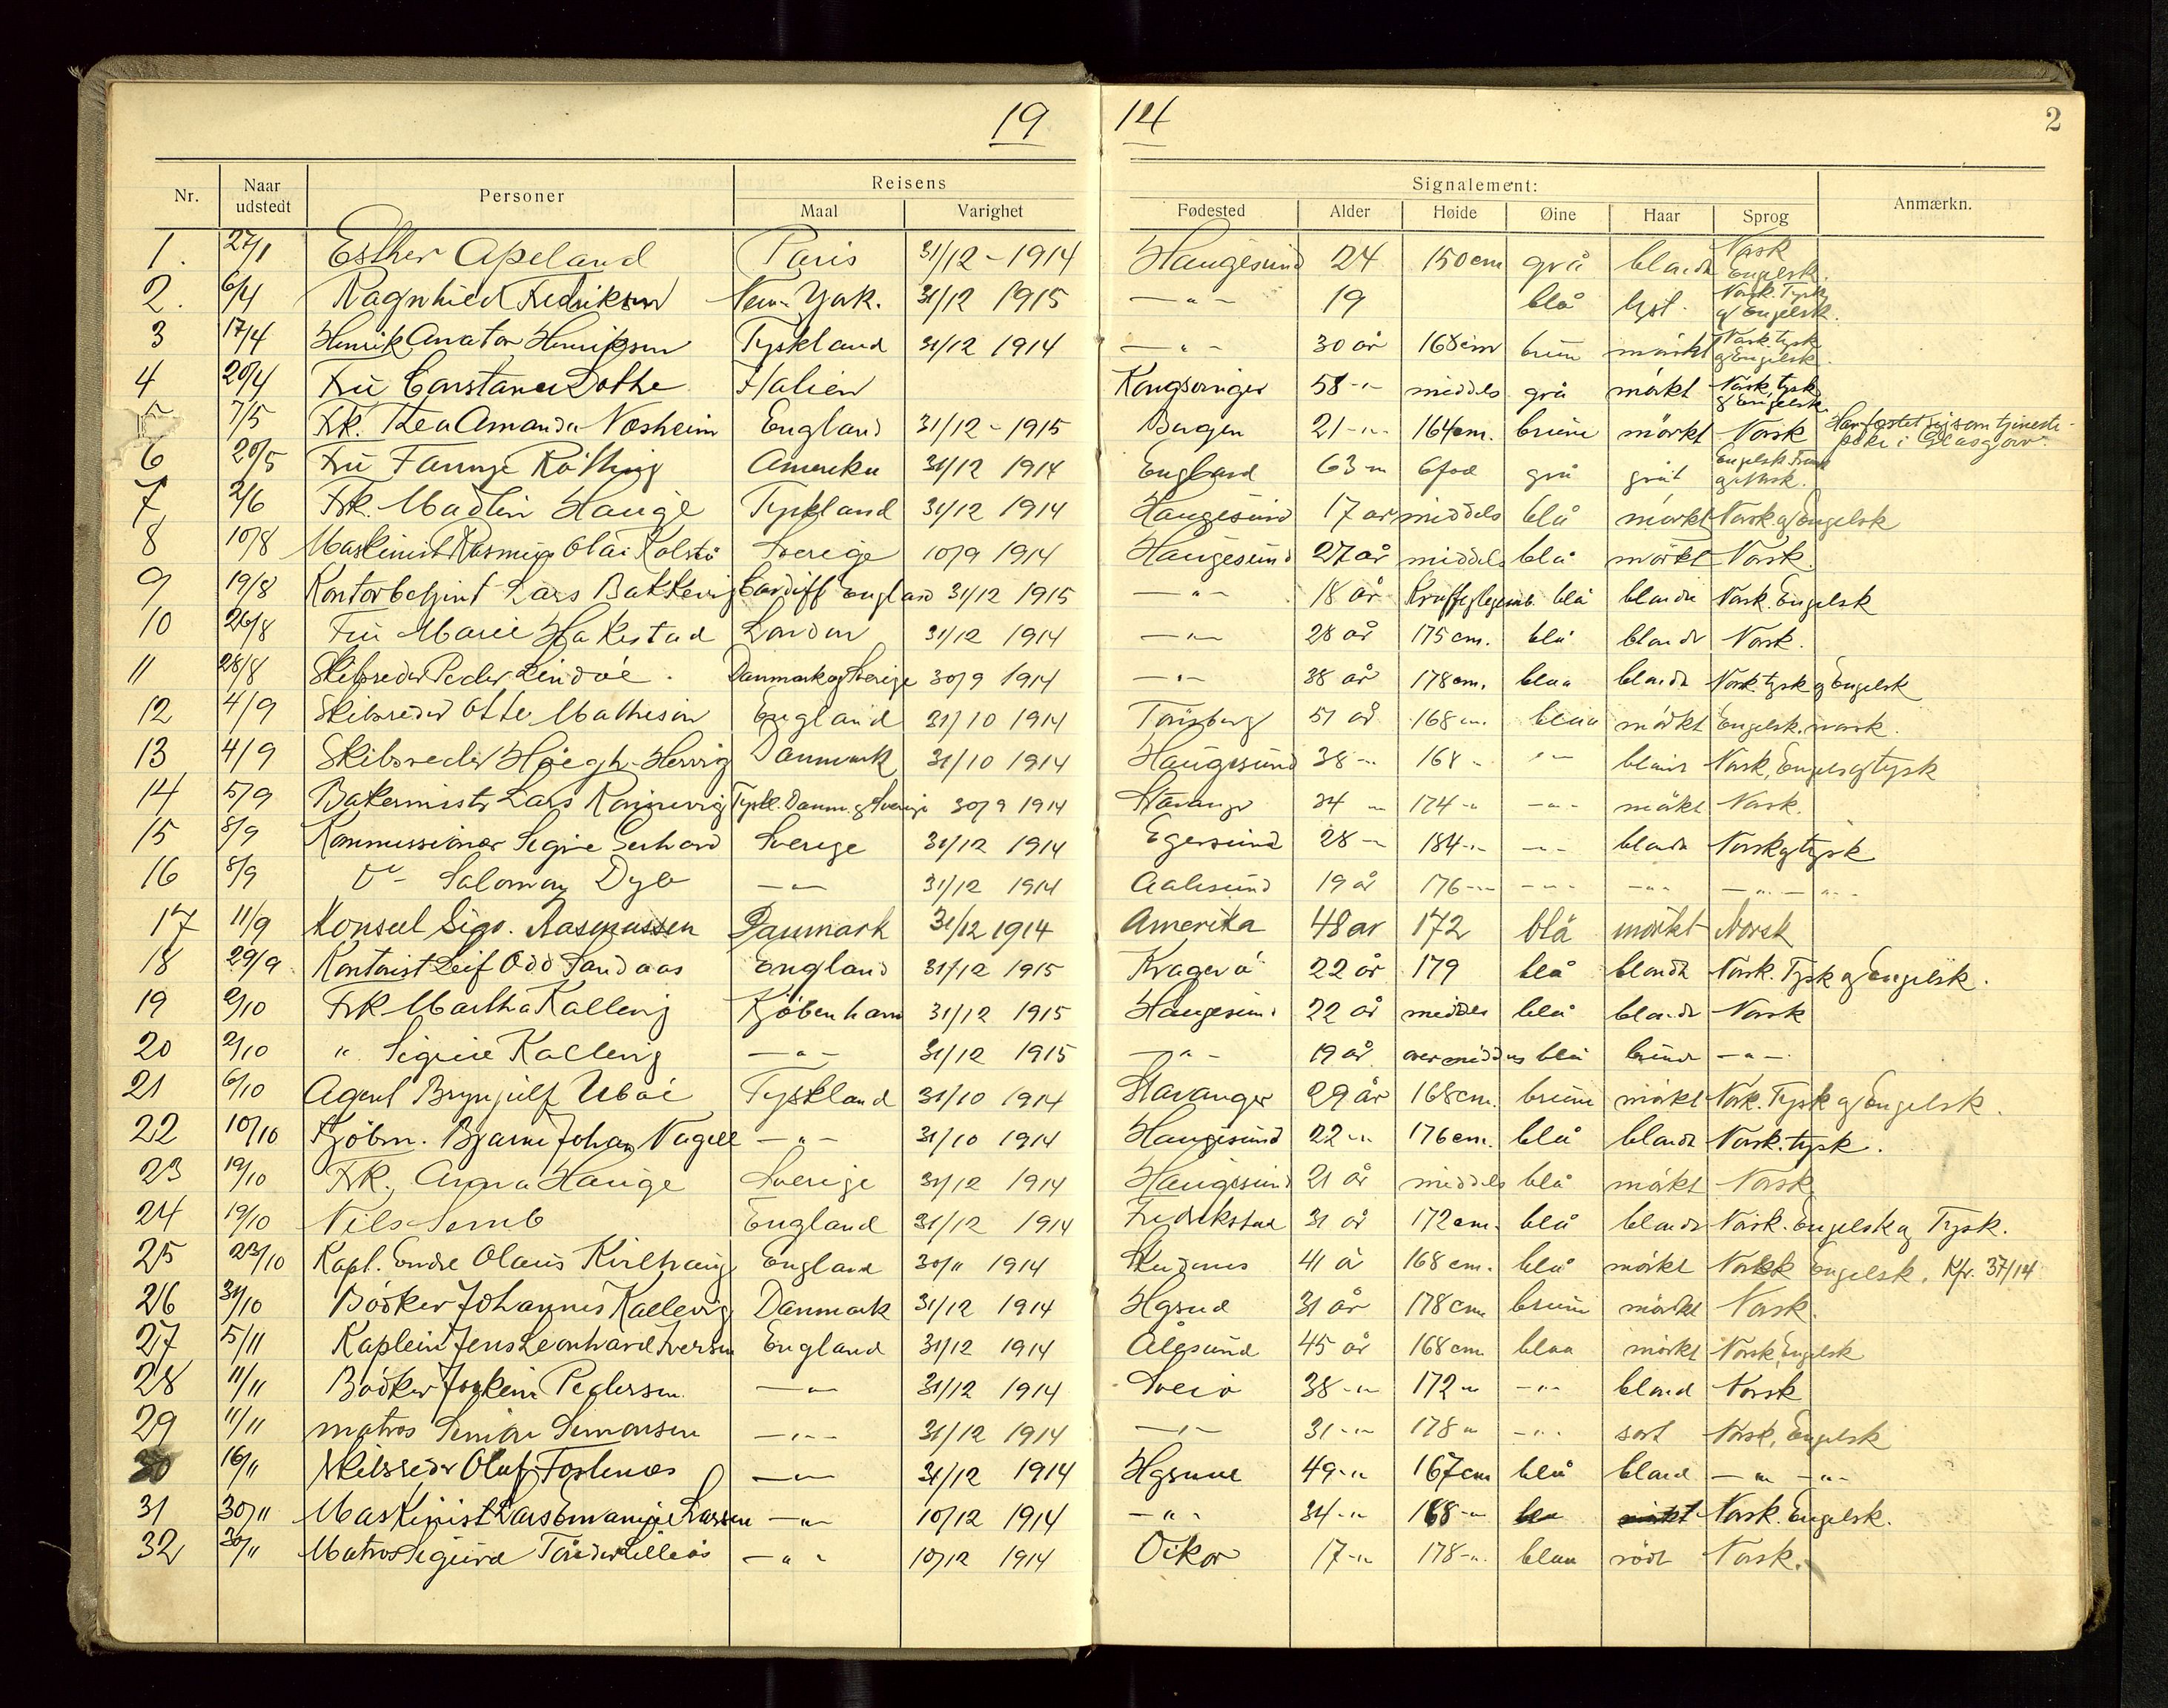 19 14 2
Nr. Naar udstedt Personer Reisens Maal Varighet Signalement: Fødested Alder Høide Øine Haar Sprog Anmærkn.
1. 27/1 Esther Apeland Paris 31/12 - 1914 Haugesund 24 150 cm grå blondt Norsk Engelsk.
2. 6/4 Ragnhild Fredriksen New-York. 31/12 1915 — " — 19 blå lyst. Norsk. Tysk og Engelsk.
3 17/4 Henrik Anaton Henriksen Tyskland 31/12 1914 — " — 30 år 168 cm brune mörkt Norsk tysk og Engelsk.
4 20/4 Frü Constance Dothe Italien Kongsvinger 58 -"- middels grå mörkt Norsk, tysk og Engelsk.
5 7/5 Frk. Thea Amanda Nosheim England 31/12 - 1915 Bergen 21 -"- 164 cm. brune mörkt Norsk Har fæstet sig som tjeneste- pike i Glasgow.
6 20/5 Frü Fannye Röthing Amerika 31/12 1914 England 63 -"- 6 fod grå gråt Engelsk Fransk og Norsk.
7 2/6 Frk. Madlin Hauge Tyskland 31/12 1914 Haugesund 17 år middels blå mörkt Norsk og Engelsk
8 10/8 Maskinist Rasmus Olai Kolstö Sverige 10/9 1914 Haugesund 27 år middels blå mörkt Norsk.
9 19/8 Kontorbetjent Lars Bakkevig Cardiff England 31/12 1915 — " — 18 år blå blonde Norsk. Engelsk
10 26/8 Frü Marie Hakestad London 31/12 1914 — " — 28 år 175 cm. blå blondt Norsk.
11 28/8 Skibsreder Peder Lindöe. Danmark og Sverige 30/9 1914 — " — 38 år 178 cm. blaa blondt Norsk. tysk og Engelsk
12 4/9 Skibsreder Otto Mathiesen England 31/10 1914 Tönsberg 51 år 168 cm. blaa mörkt Engelsk. norsk.
13 4/9 Skibsreder Höegh-Hervig Danmark 31/10 1914 Haugesund 38 -"- 168 - "- blondt Norsk, Engelsk og tysk
14 5/9 Bakermester Lars Kringevig Tyskl. Danm. og Sverige 30/9 1914 Stavanger 34 -"- 174 -"- -"- mörkt Norsk.
15 8/9 Kommissionær Signe Gerhard Sverige 31/12 1914 Egersund 28 -"- 184 -"- -"- blondt Norsk og tysk
16 8/9 Salomon Dyb — " — 31/12 1914 Aalesund 19 år 176 -"- -"- -"- — " — " —
17 11/9 Konsul Sigv. Rasmussen Danmark 31/12 1914 Amerika 48 år 172 blå mörkt Norsk
18 29/9 Kontorist Leif Odd Sandaas England 31/12 1915 Kragerö 22 år 179 blå blondt Norsk. Tysk og Engelsk.
19 2/10 Frk Martha Kallevig Kjöbenhavn 31/12 1915 Haugesund 22 år middels blå blondt Norsk
20 2/10 " Signe Kallevig — " — 31/12 1915 — " — 19 år over middels blå — " —
21 6/10 Agent Brynjulf Uböe Tyskland 31/10 1914 Stavanger 29 år 168 cm. brune mörkt Norsk. Tysk og Engelsk.
22 10/10 Kjöbm. Bjarne Johan Nagell — " — 31/10 1914 Haugesund 22 -"- 176 cm. blå blondt Norsk. tysk.
23 19/10 Frk. Anna Hauge Sverige 31/12 1914 Haugesund 21 år middels blå mörkt Norsk
24 19/10 Nils Semb England 31/12 1914 Fredrikstad 31 år 172 cm. blå blondt Norsk. Engelsk og Tysk.
25 23/10 Kapt. Endre Olaus Kirkhaug England 30/11 1914 Skudenes 41 å 168 cm. blå mörkt Norsk Engelsk. Kfr. 37/14
26 31/10 Bödker Johannes Kallevig Danmark 31/12 1914 Hgsund 31 år 178 cm brune mörkt Norsk.
27 5/11 Kaptein Jens Leonhard Iversen England 31/12 1914 Ålesund 45 år 168 cm blaa mörkt Norsk, Engelsk
28 11/11 Bödker Joakim Pedersen — " — 31/12 1914 Sveio 38 -"- 172 -"- -"- blond Norsk
29 11/11 matros Simon Simonsen — " — 31/12 1914 — " — 31 -"- 178 -"- -"- sort Norsk, Engelsk
30 16/11 Skibsreder Oluf Fosenes — " — 31/12 1914 Hgsund 49 -"- 167 cm blå blond — " — " —
31 30/11 Maskinist Lars Emanuel Larsen — " — 10/12 1914 — " — 34 -"- 168 -"- mörkt Norsk. Engelsk.
32 30/11 Matros Sigurd Lilleås — " — 10/12 1914 Ölkor 17 -"- 178 -"- blaa rödt Norsk.